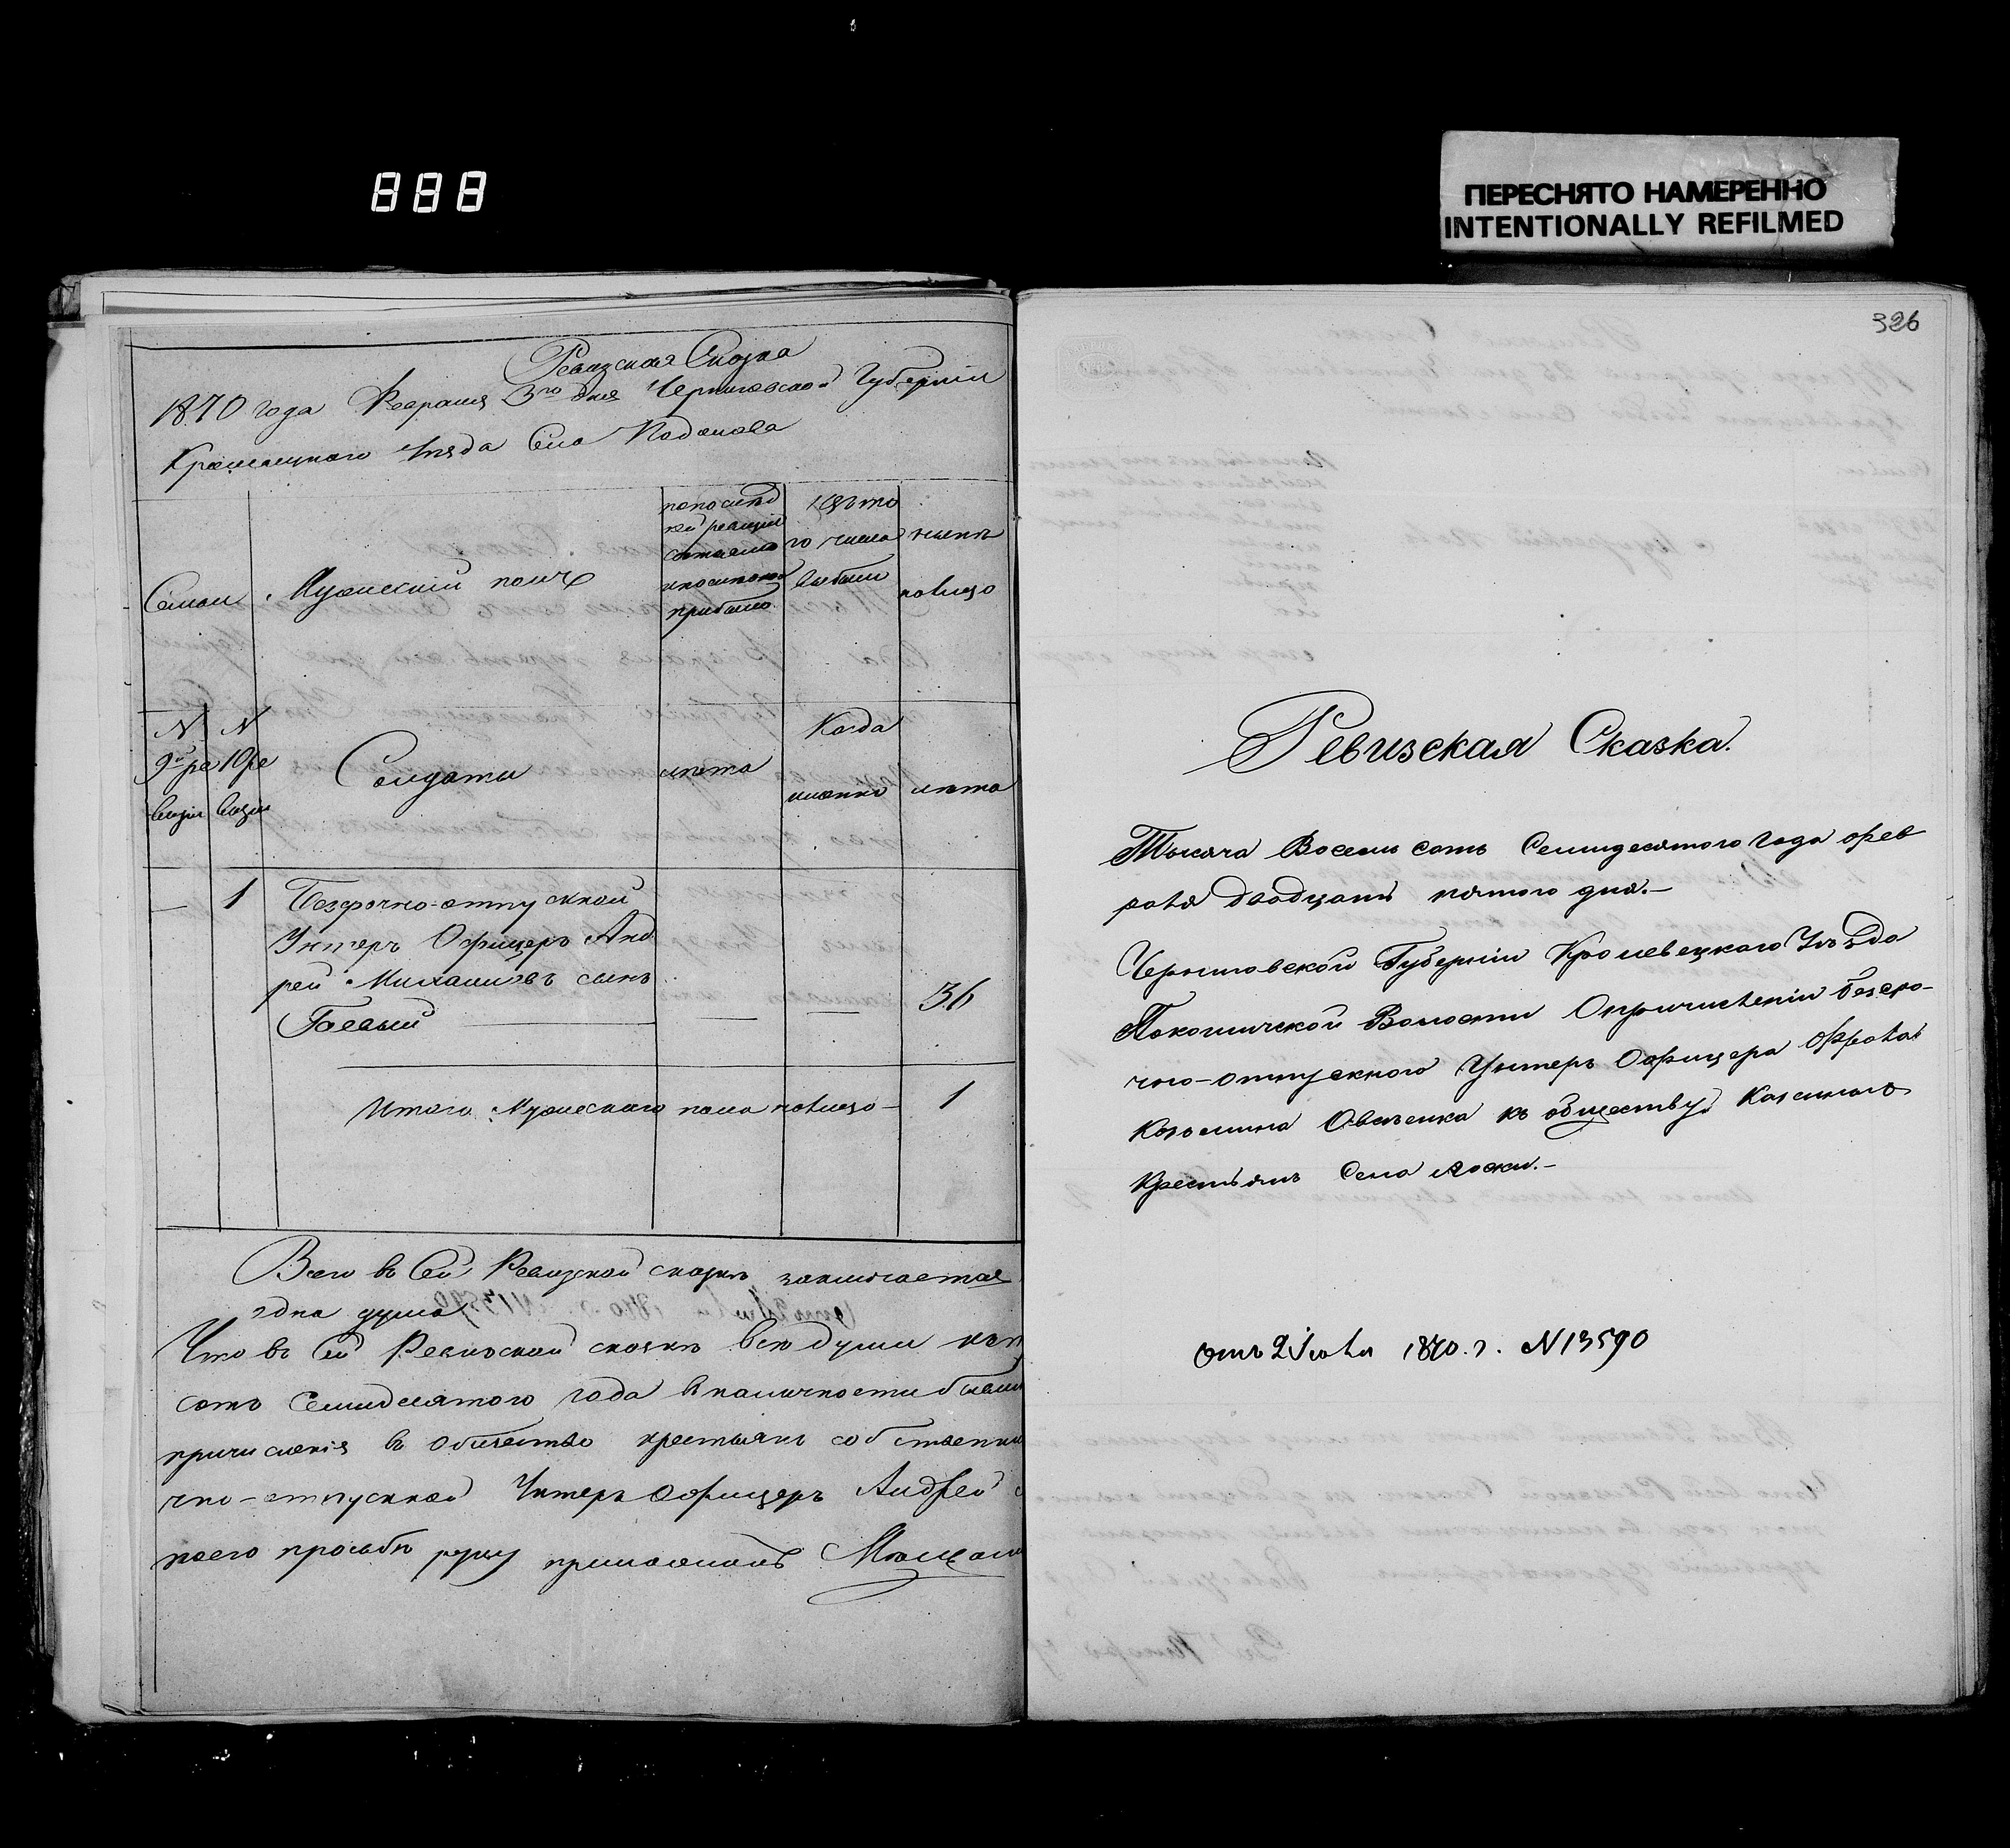 888
ПЕРЕСНЯТО НАМЕРЕННО
INTENTIONALLY REFILMED
Ревизская Сказка
1870 года Февраля 3го дня Черниговской Губернiи
Кролевецкаго Уѣзда Села Подолова
Семьи
Мужескiй полъ
по послѣд
ней ревизiи
состояло
и послѣ оной
прибыло
Изъ то
го числа
выбыло
нынѣ
налицо
N
9й ре
визiи
N
10 ре
визiи
Солдаты
лѣта
Когда
именно
лѣта
— 1 Безсрочно-отпускной
Унтеръ Офицеръ Анд
рей Михайловъ сынъ
Гоевый — — 36
Итого Мужескаго пола налицо — 1
Всего въ Сей Ревизской сказкѣ заключается
одна душа
Что въ Сей Ревизской сказкѣ всѣ души
сотъ Семидесятого года в наличности бывши
причисленiя въ Общество крестьянъ собственни
чно-отпускной Унтеръ Офицеръ Андрей
коего прозьбѣ руку приложилъ
326
Ревизская Сказка.
Тысяча Восемь сотъ Семидесятого года Фев
раля двадцать пятого дня.—
Черниговской Губернiи Кролевецкаго Уѣзда
Покошичской Волости О причисленiи безсро-
чно-отпускного Унтеръ Офицера
Козьмина Овсѣенка къ обществу Казенныхъ
Крестьянъ Села Лоски.—
отъ 2 Iюля 1870. г. N 13590